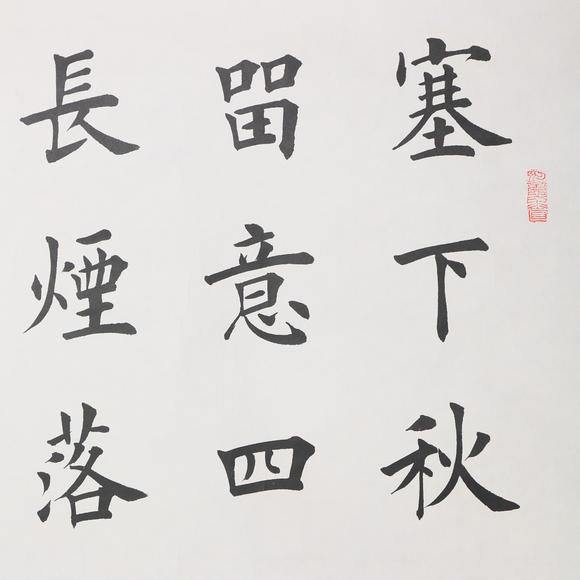 塞下秋
留意四
長煙落